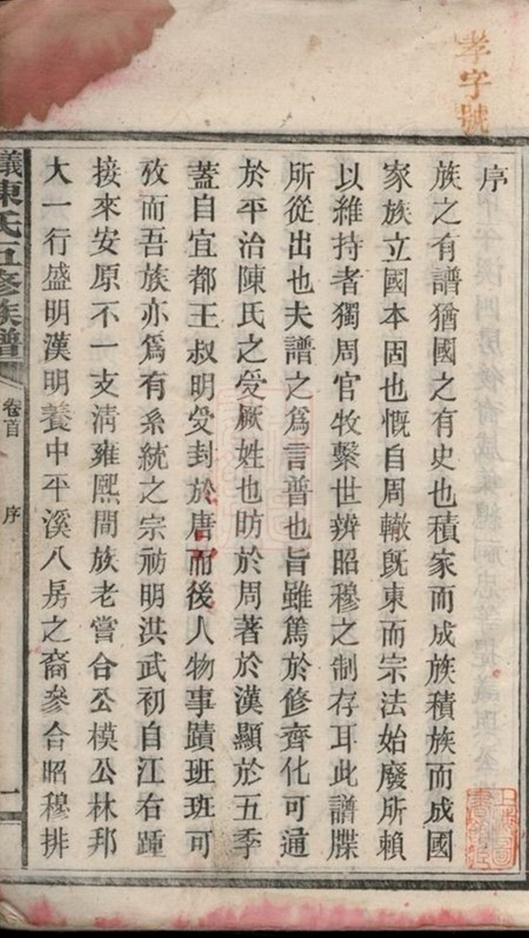 孝字號
序
族之有譜猶國之有史也積家而成族積族而成國
家族立國本固也慨自周轍旣東而宗法始廢所賴
以維持者獨周官牧繫世辨昭穆之制存耳此譜牒
所從出也夫譜之爲言普也旨雖篤於修齊化可通
於平治陳氏之受厥姓也昉於周著於漢顯於五季
蓋自宜都王叔明受封於唐而後人物事蹟班班可
攷而吾族亦爲有系統之宗祊明洪武初自江右踵
接來安原不一支淸雍熙間族老嘗合公模公林邦
大一行盛明漢明養中平溪八房之裔參合昭穆排
陳氏五修族譜
卷首
序
一